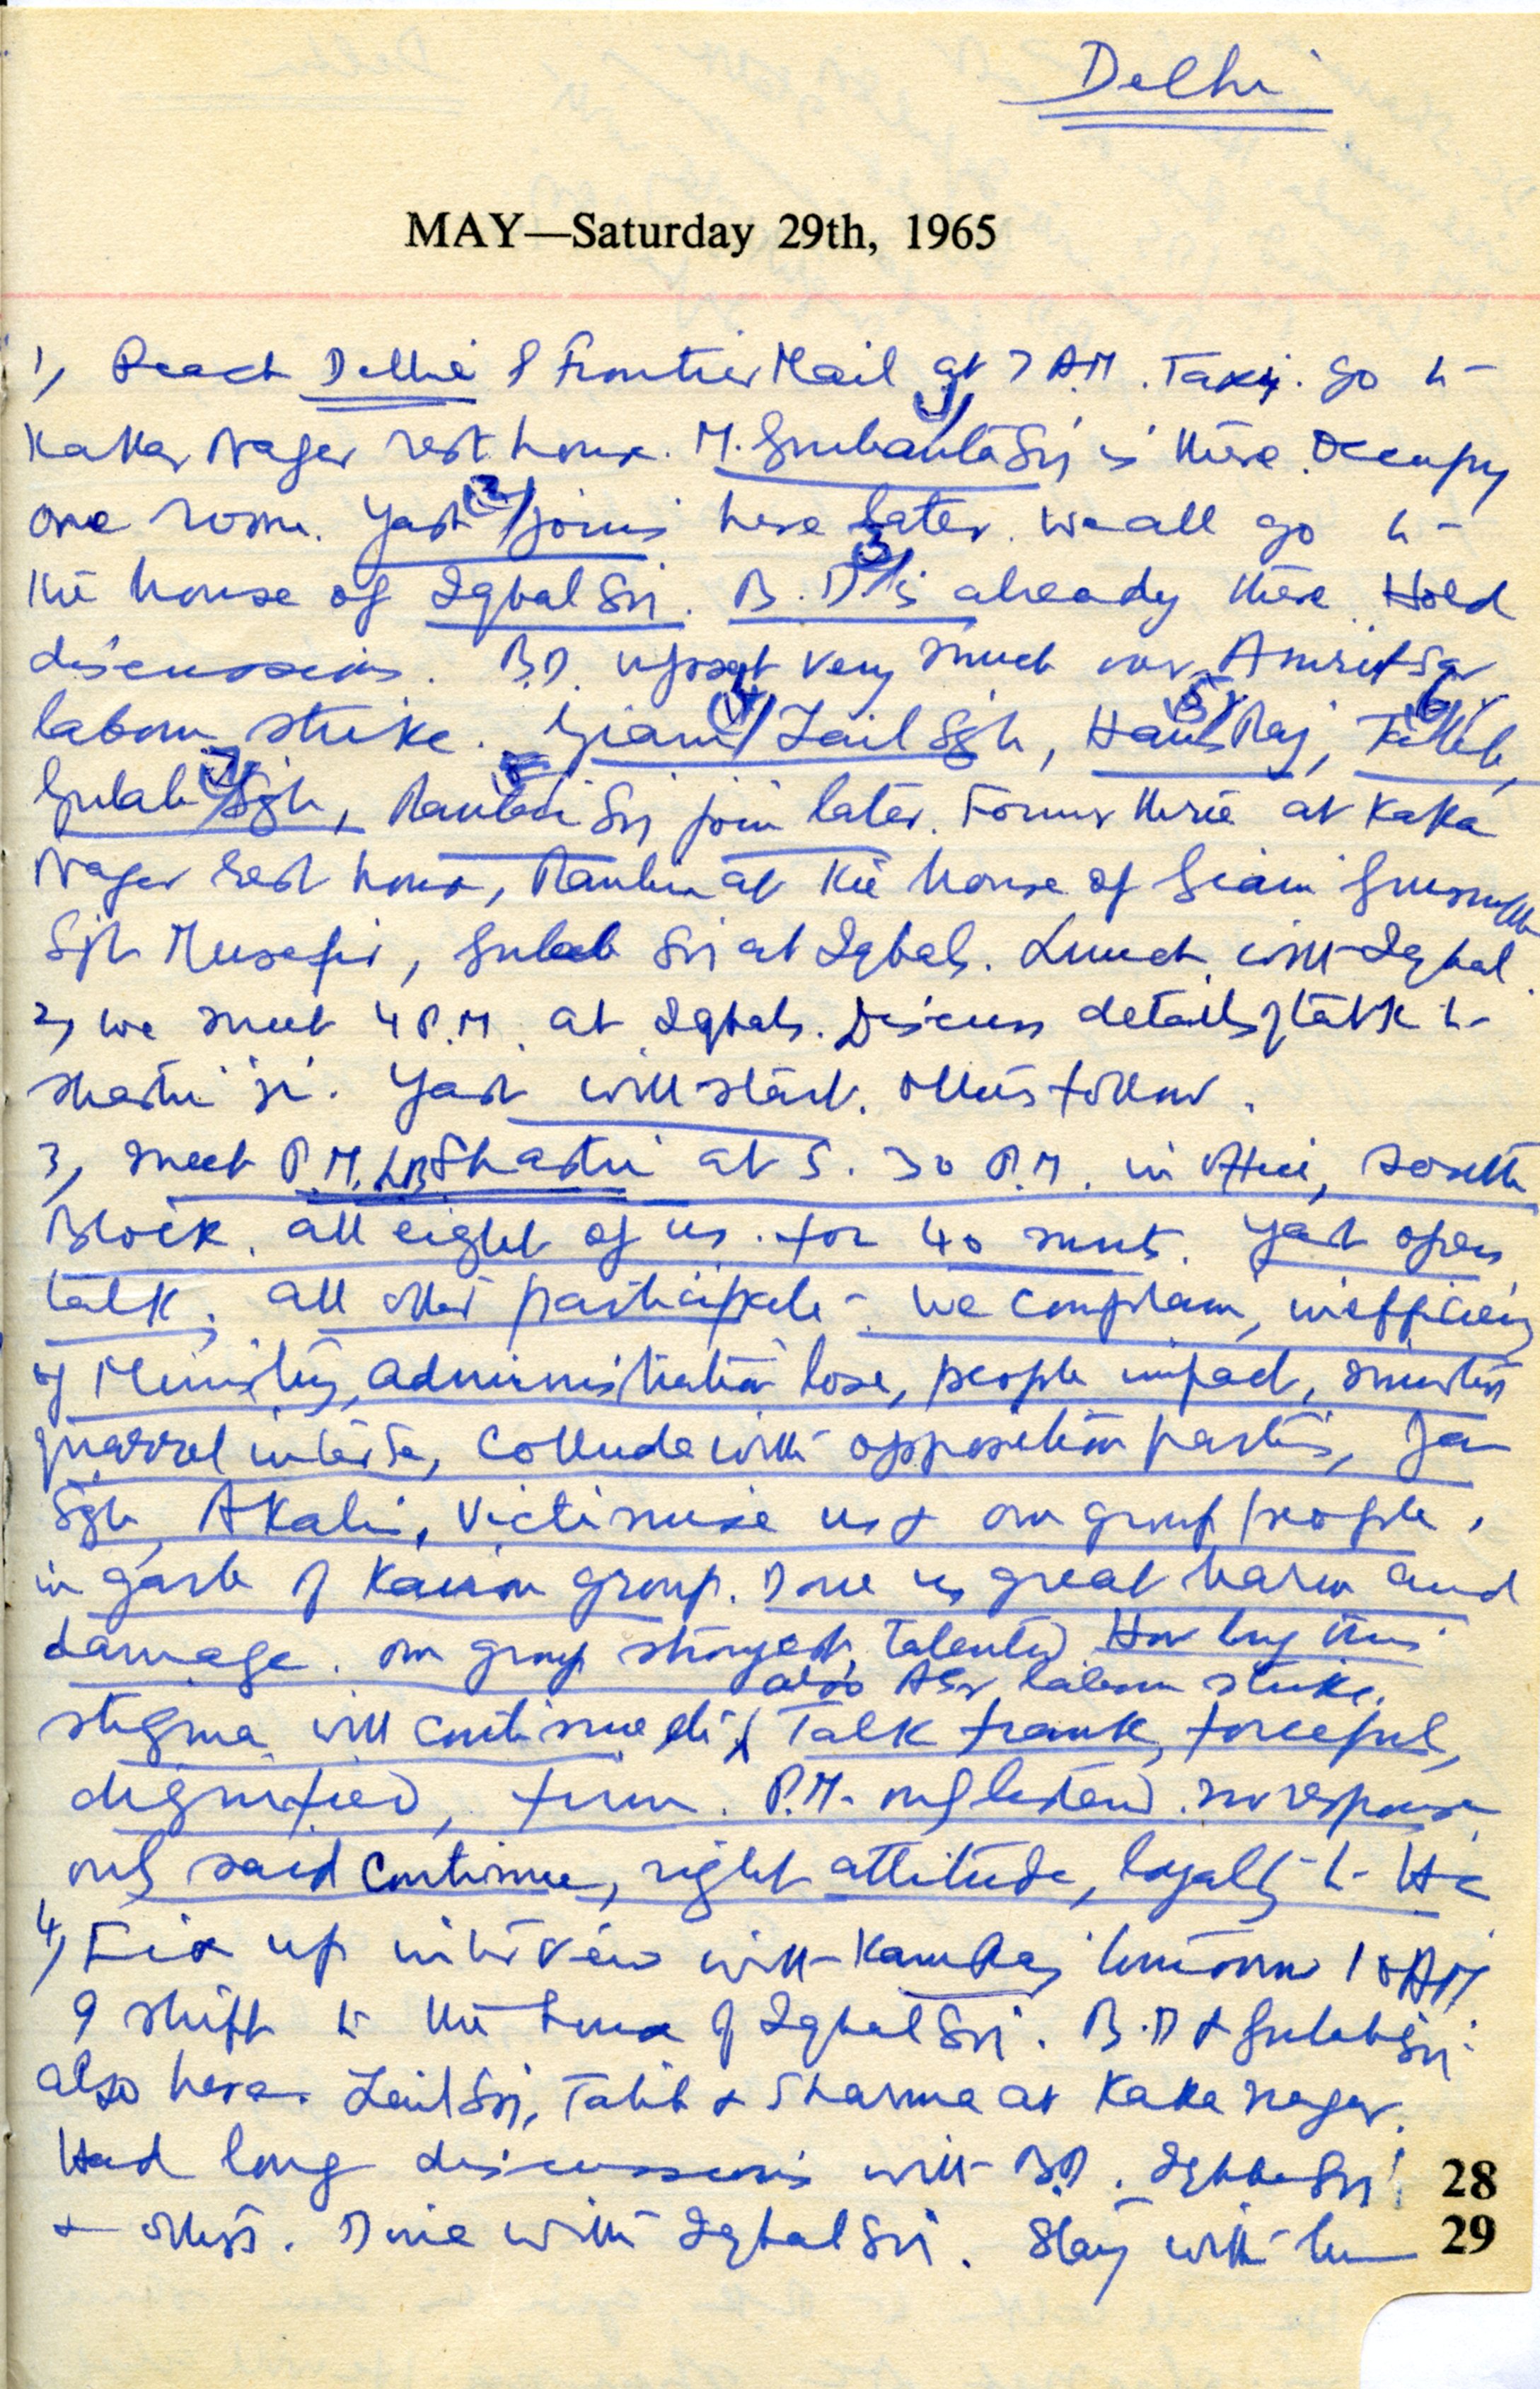 Delhi
MAY—Saturday 29th, 1965
1) Reach Delhi by Frontier Mail at 7 AM. Taxi. go to
Kaka Nagar rest house. M. Gurbanta Sgh is there. Occupy
one room. Yash (2) joins here later. We all go to
the house of Iqbal Sgh. B.D. (3) is already there. Hold
discussions. B.D. upset very much over Amritsar
labour strike. Giani (4) Zail Sgh, Hans (5) Raj, Talib (6),
Gulab (7) Sgh, Ranbir Sgh join later. Former three at Kaka
Nagar rest house, Ranbir at the house of Giani Gurmukh
Sgh Musafir, Gulab Sgh at Iqbals. Lunch with Iqbal.
2) We meet 4 P.M. at Iqbals. Discuss details of talk to
Shastri ji. Yash will start. Others follow.
3) Meet P.M. LB Shastri at 5.30 P.M. in office, South
Block. all eight of us. for 40 mnts. Yash opens
talk. all others participate. We complain, inefficiency
of Ministry, administration lose, people impact, ministers
quarrel interse, collude with opposition parties, Jan
Sgh, Akalis, victimise us & our group people,
in garb of Kairon group. Done us great harm and
damage. Our group strongest, talented. How long this
also ASr labour strike.
stigma will continue etc. Talk frank, forceful,
dignified, firm. P.M. only listened. no response
only said continue, right attitude, loyalty to
4) Fix up interview with Kamraj tomorrow 10 AM
I shift to the house of Iqbal Sgh. B.D & Gulab Sgh
also here. Zail Sgh, Talib & Sharma at Kaka nagar.
Had long discussions with B.D. Iqbal Sgh
& others. Dine with Iqbal Sgh. Stay with him
28
29